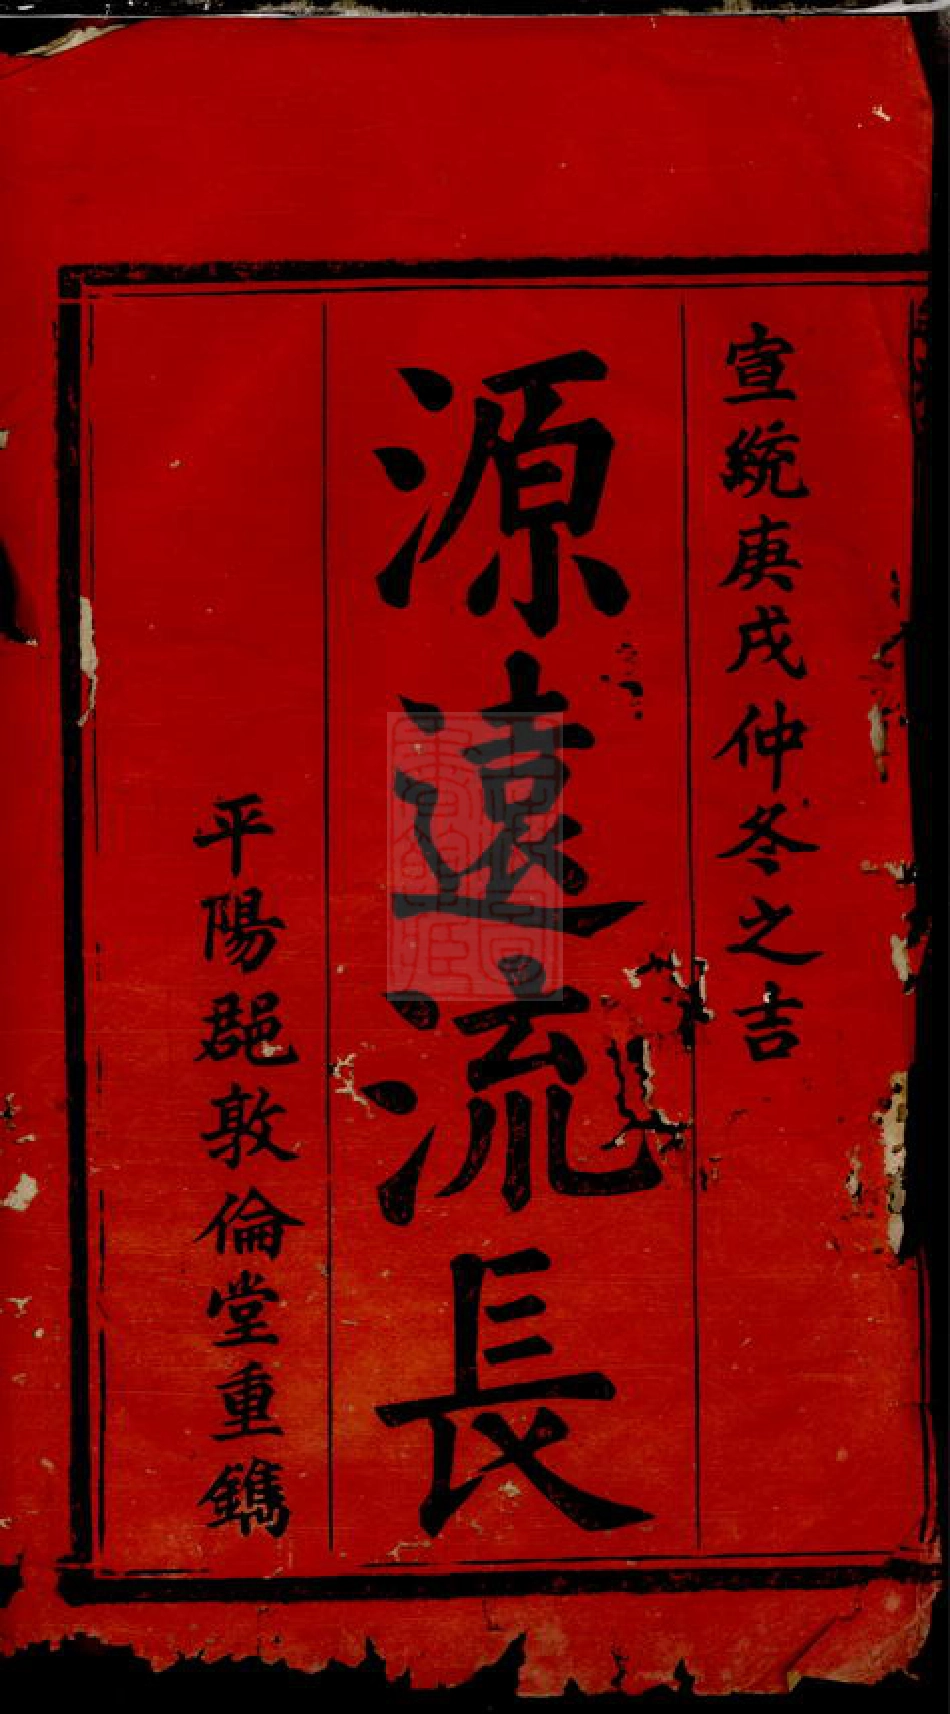 宣統庚戌仲冬之吉
源遠流長
平陽郡敦倫堂重鐫